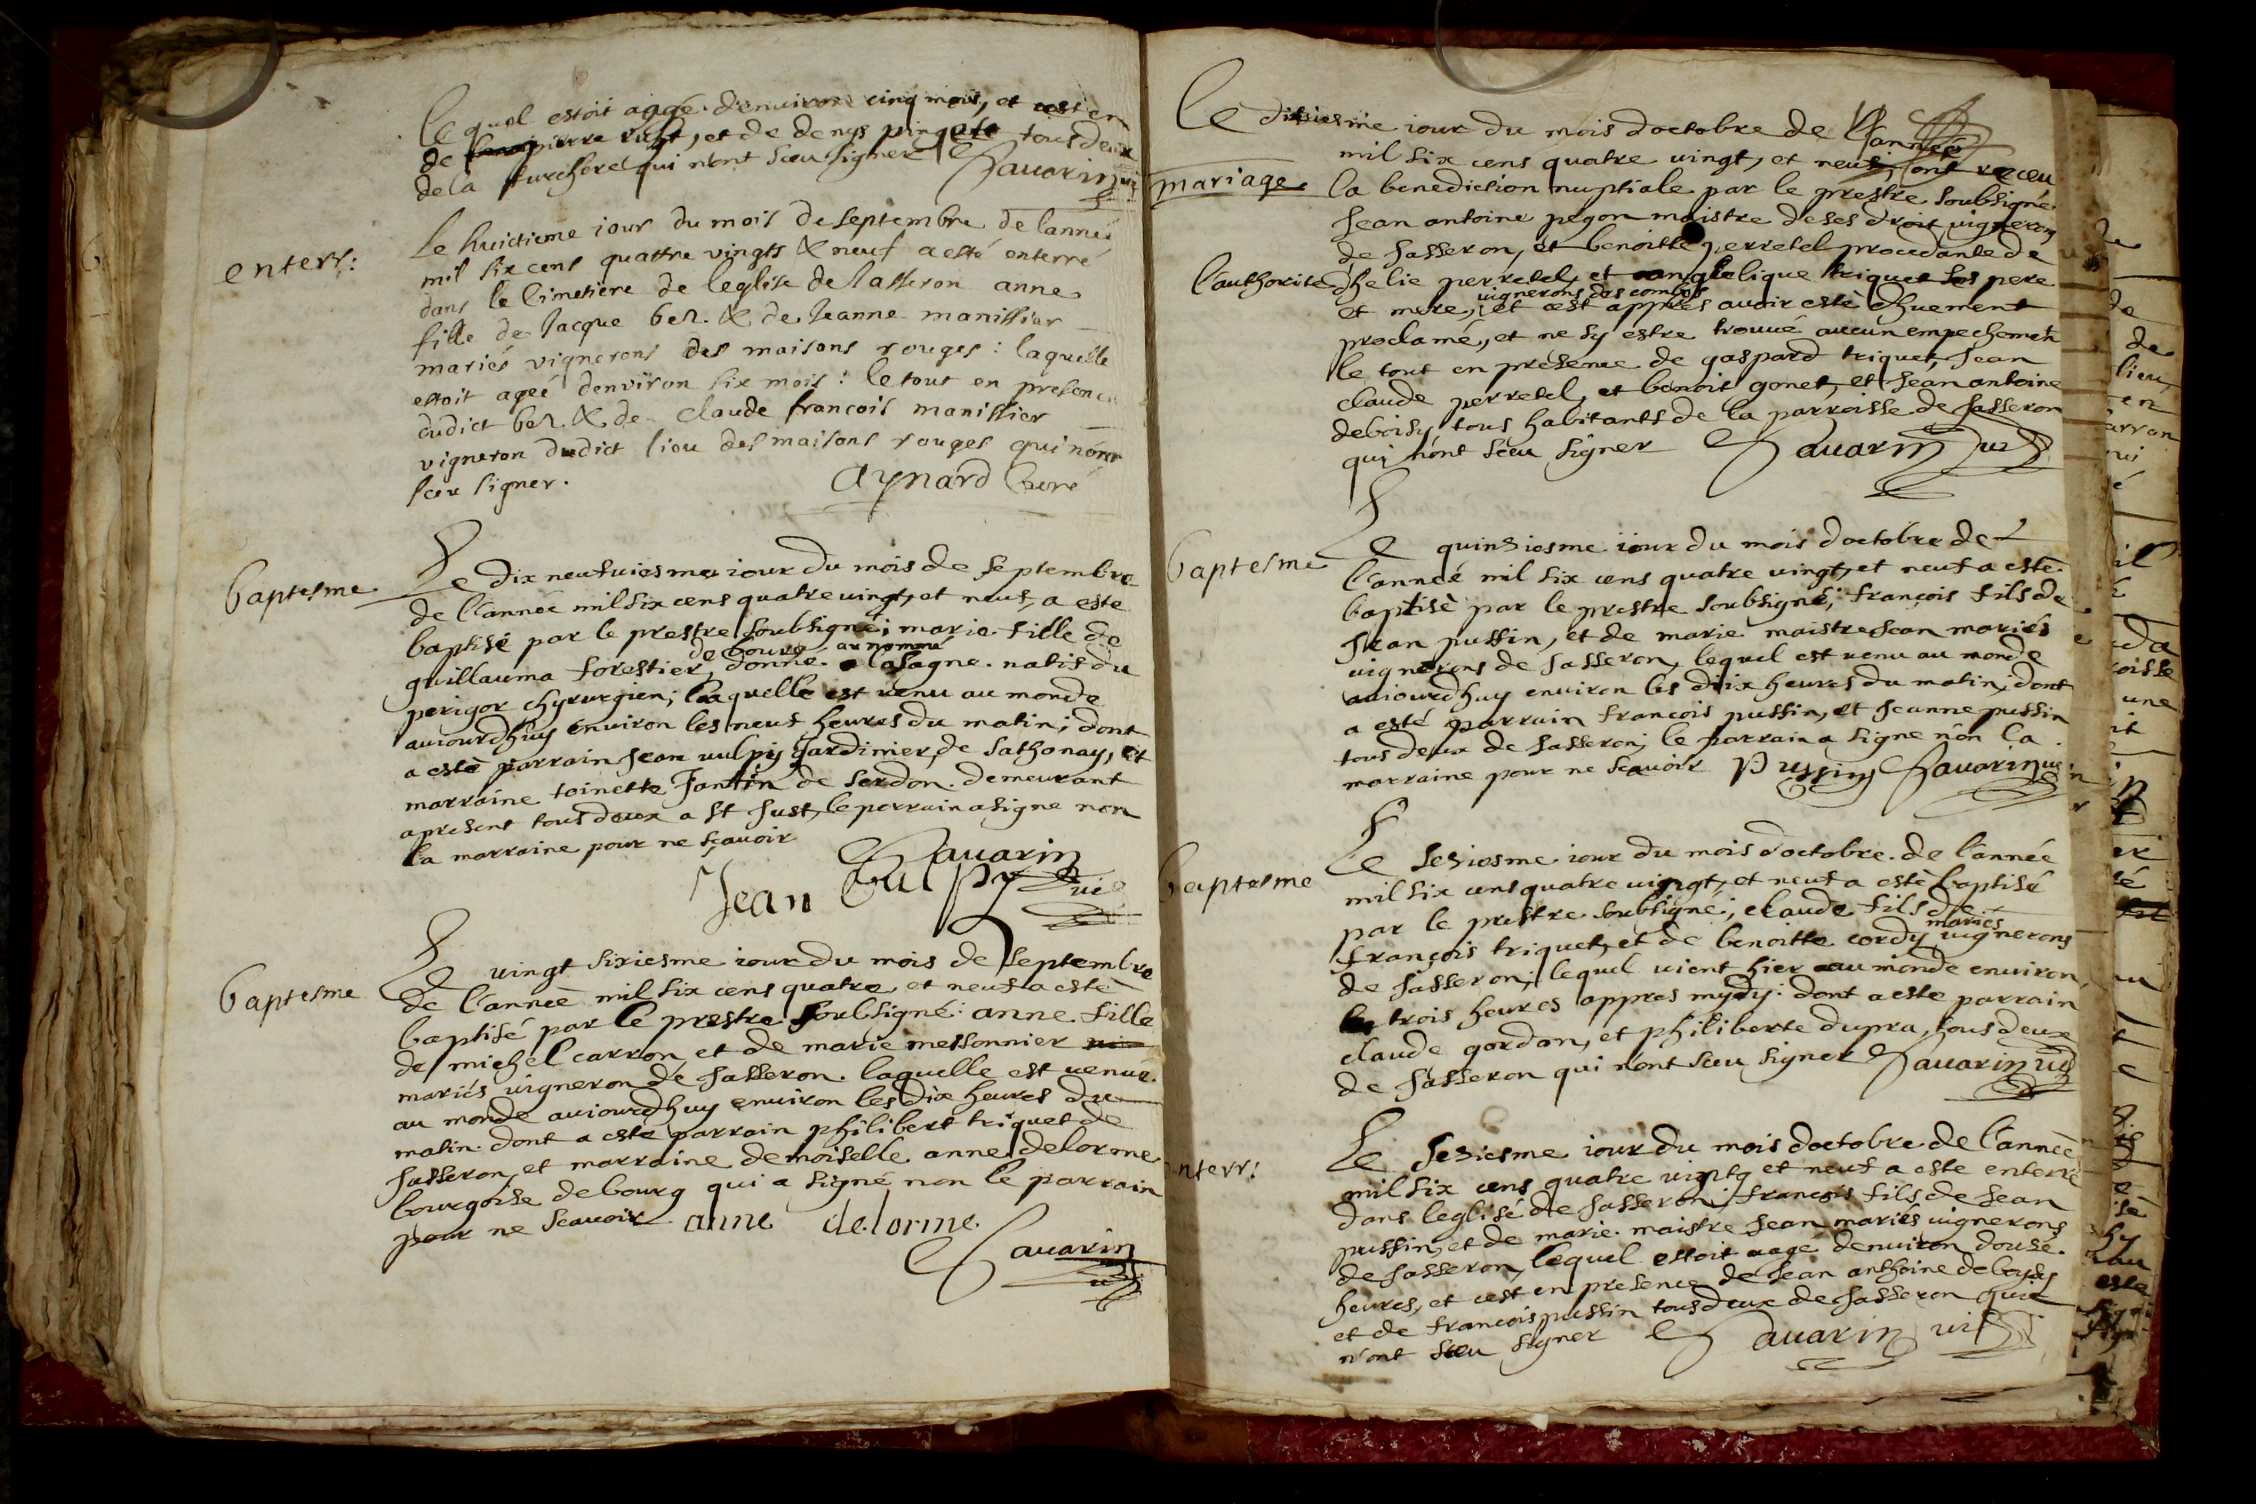 le quel estoit aggé denviron cinq mois, et cest en
de pierre, et de denys pinquete tous deux
de la furchere qui n'ont sceu signer Savarin vic
enterr:
Le huictieme iour du mois de septembre de l'année
mil six cens quattre vingts & neuf a esté enterré
dans le cimetiere de leglise de Iasseron anne
fille de Iacque bez. & de Ieanne manissier
mariés vignerons des maisons rouges: laquelle
estoit ageé denviron six mois: le tout en presence
dudict bez. & de claude francois manissier
vigneron dudict lieu des maisons rouges qui nont
sceu signer. Aynard Curé
baptesme
Le dix neufuiesme iour du mois de septembre
de l'année mil six cens quatre vingt, et neuf, a esté
baptisé par le prestre soubsigné; marie fille de
de bourg au nomme
guillauma forestier, donné a lasagne. natif du
perigor chyrurgien; laquelle est venu au monde
auiourdhuy environ les neuf heures du matin; dont
a esté parrain Jean vulpy Jardinier de Sathonay, et
marraine toinette Fantin de serdon. demeurant
apresent tous deux a st Just, le parrain a signe non
la marraine pour ne sçavoir
Savarin vic
Jean Vulpy
baptesme
Le vingt sixiesme iour du mois de septembre
de l'anneé mil six cens quatre et neuf a esté
baptisé par le prestre soubsigné: anne fille
de michel carron et de marie messonnier
mariés vigneron de Jasseron. laquelle est venue.
au monde auiourdhuy environ les dix heures du
matin. dont a esté parrain philibert triquet de
Jasseron, et marraine demoiselle anne delorme
bourgoise de bourg qui a signé non le parrain
pour ne scavoir anne delorme
Savarin vic
Le dixiesme iour du mois d'octobre de l'année
mil six cens quatre vingt, et neuf, ont receu
mariage
la benediction nuptiale par le prestre soubsigné.
Jean antoine pegon maistre de ses droit vigneron
de Jasseron, et benoitte perretel procedante de
l'authorité dhelie perretel, et angelique triquet ses pere
vignerons des combes
et mere, et cest appres avoir esté dhuement
proclamé, et ne sy estre trouvé aucun empechement
le tout en présence de gaspard triquet, Jean
claude perretel, et benoit gonet, et Jean antoine
deboisy tous habitants de la parroisse de Jasseron
qui n'ont sceu signer Savarin vic
baptesme
Le quinsiesme iour du mois d'octobre de
l'anneé mil six cens quatre vingt, et neuf a esté
baptisé par le prestre soubsigné; françois fils de
Jean pussin, et de marie maistre Jean mariés
vignerons de Jasseron, lequel est venu au monde
auiourdhuy environ les dix heures du matin; dont
a esté parrain françois pussin, et Jeanne pussin
tous deux de Jasseron; le parrain a signe non la
marraine pour ne scavoir Pussin Savarin vic
baptesme
Le sesiesme iour du mois d'octobre. de l'année
mil six cens quatre vingt, et neuf a esté baptisé
par le prestre soubsigné; claude fils de
mariés
françois triquet, et de benoitte cordy vignerons
de Jasseron; lequel vient hier au monde environ
les trois heures appres mydy: dont a esté parrain
claude gordan, et philiberte dupra, tous deux
de Jasseron qui n'ont sceu signer Savarin vic
enterr:
Le sesiesme iour du mois d'octobre de l'anneé
mil six cens quatre vingtq et neuf a esté enterré
dans leglisé de Jasseron; francois fils de Jean
pussin, et de marie maistre Jean mariés vignerons
de Jasseron, lequel estoit aagé denviron douse.
heures, et cest en presence de Jean anthoine deboisy
et de francois pussin tous deux de Jasseron qui
n'ont sceu signer Savarin vic